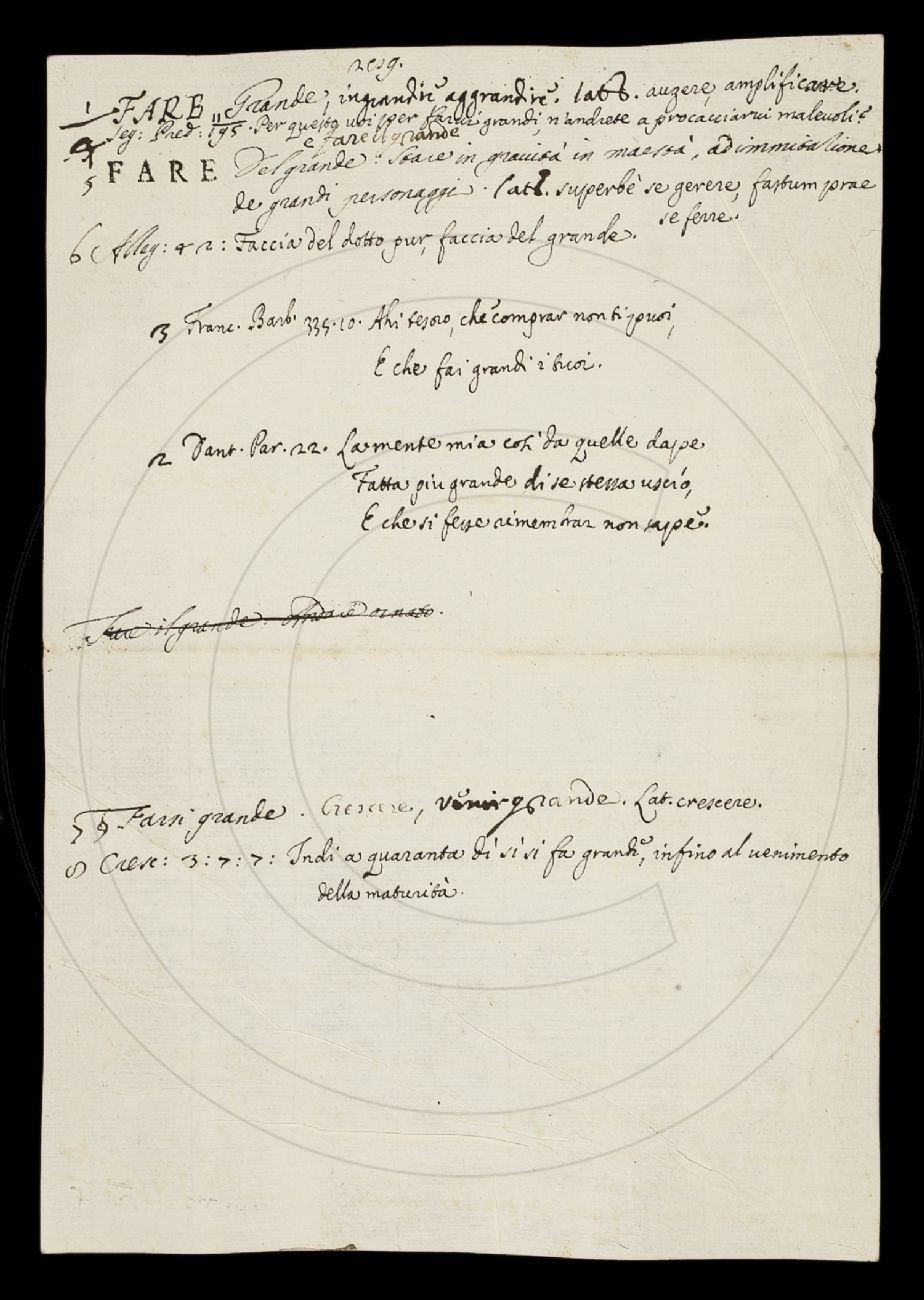 resg.
1 FARE Grande, ingrandire, aggrandire. lat. augere, amplificare.
4 Seg: Pred: 195. Per questo voi per farvi grandi, n'andrete a procacciarvi malevoli
e Fare il grande
5 FARE Del grande: Stare in gravità in maestà, ad immitazione
de grandi personaggi. lat. superbè se gerere, fastum prae
se ferre.
6 Alleg: 42: Faccia del dotto pur, faccia del grande.
3 Franc. Barb. 335.10. Ahi tesoro, che comprar non ti puoi,
E che fai grandi i tuoi.
2 Dant. Par. 22. La mente mia così da quelle dape
Fatta piu grande di se stessa uscìo,
E che si fesse rimembrar non sape.
Fare il grande. ornato.
7 Farsi grande. Crescere, venir grande. Lat. crescere.
8 Cresc: 3:7:7: Indi a quaranta dì sì si fa grande, infino al venimento
della maturità.